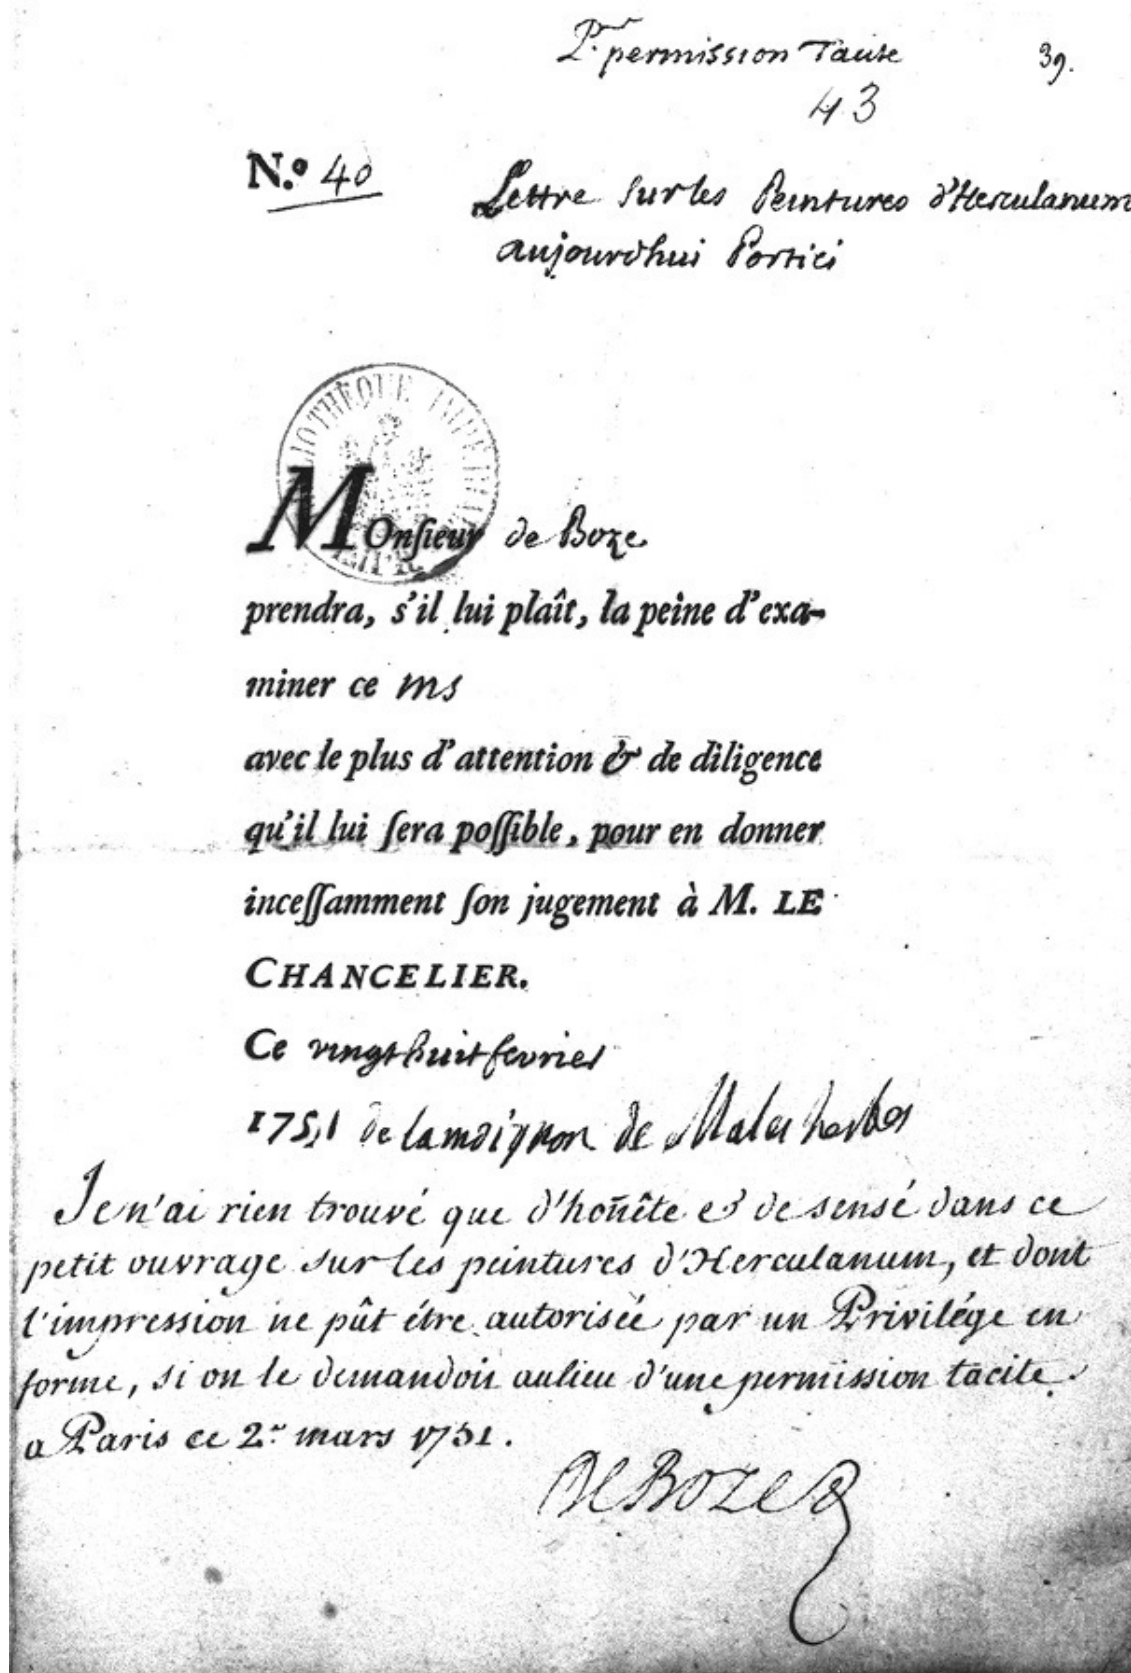 Pr. permission Tacite 39.
43
N.º 40
Lettre sur les Peintures d'Herculanum
aujourdhui Portici
BIBLIOTHÈQUE IMPERIALE
MOnſieur de Boze
prendra, s'il lui plaît, la peine d'exa-
miner ce ms
avec le plus d'attention & de diligence
qu'il lui ſera poſſible, pour en donner
inceſſamment ſon jugement à M. LE
CHANCELIER.
Ce vingt huit fevrier
1751 de lamoignon de Malesherbes
Je n'ai rien trouvé que d'hoñête et de sensé dans ce
petit ouvrage sur les peintures d'Herculanum, et dont
l'impression ne pût étre autorisée par un Privilége en
forme, si on le demandoit aulieu d'une permission tacite.
a Paris ce 2.r mars 1751.
De BOZE